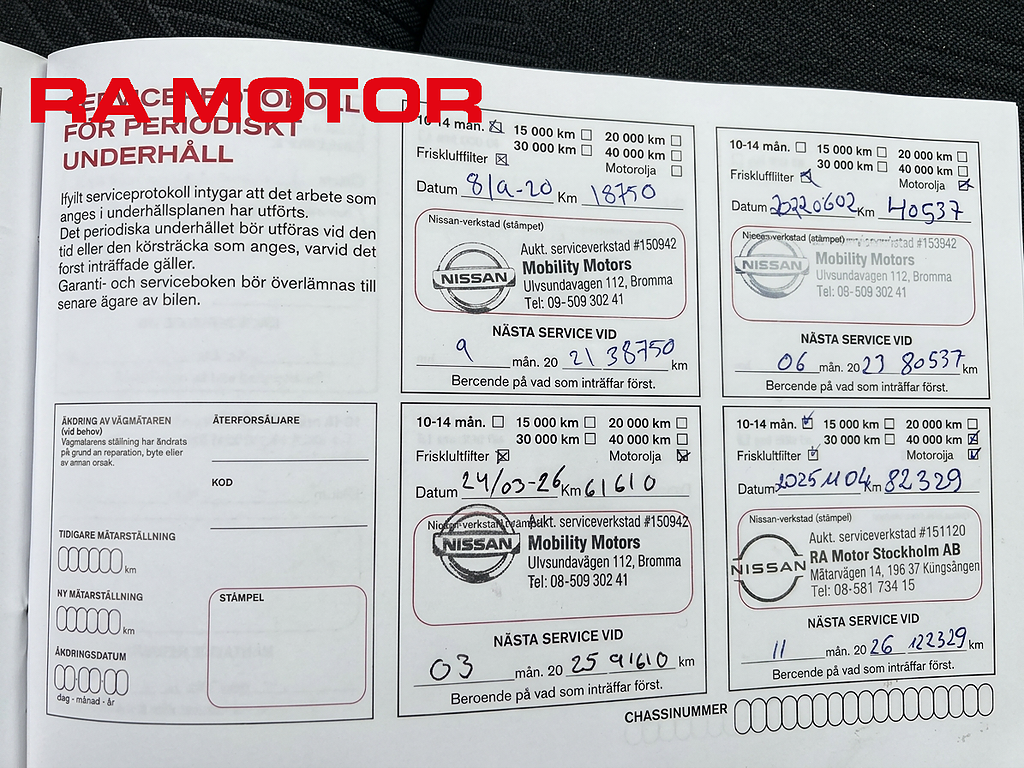 RA MOTOR
SERVICEPROTOKOLL
FÖR PERIODISKT
UNDERHÅLL
Ifyllt serviceprotokoll intygar att det arbete som
anges i underhållsplanen har utförts.
Det periodiska underhållet bör utföras vid den
tid eller den körsträcka som anges, varvid det
forst inträffade gäller.
Garanti- och serviceboken bör överlämnas till
senare ägare av bilen.
10-14 mån. 15 000 km 20 000 km
30 000 km 40 000 km
Friskluffilter Motorolja
Datum 8/9-20 Km 18750
Nissan-verkstad (stämpel)
NISSAN
Aukt. serviceverkstad #150942
Mobility Motors
Ulvsundavagen 112, Bromma
Tel: 09-509 302 41
NÄSTA SERVICE VID
9 mån. 20 21 38750 km
Bercende på vad som inträffar först.
10-14 mån. 15 000 km 20 000 km
30 000 km 40 000 km
Friskluffilter Motorolja
Datum 20220602 Km 40537
verkstad (stämpel) #153942
NISSAN
Mobility Motors
Ulvsundavagen 112, Bromma
Tel: 08-509 302 41
NÄSTA SERVICE VID
06 mån. 20 23 80537 km
Bercende på vad som inträffar först.
ÄNDRING AV VÄGMÄTAREN
(vid behov)
Vagmatarens ställning har ändrats
på grund an reparation, byte eller
av annan orsak.
ÅTERFORSÄLJARE
KOD
TIDIGARE MÄTARSTÄLLNING
km
NY MÄTARSTÄLLNING
km
STÄMPEL
ÄKDRINGSDATUM
dag - månad - år
10-14 mån. 15 000 km 20 000 km
30 000 km 40 000 km
Friskluffilter Motorolja
Datum 24/03-26 Km 61610
Aukt. serviceverkstad #150942
NISSAN
Mobility Motors
Ulvsundavägen 112, Bromma
Tel: 08-509 302 41
NÄSTA SERVICE VID
03 mån. 20 25 91610 km
Beroende på vad som inträffar först.
10-14 mån. 15 000 km 20 000 km
30 000 km 40 000 km
Friskluffilter Motorolja
Datum 20251104 Km 82329
Nissan-verkstad (stämpel)
NISSAN
Aukt. serviceverkstad #151120
RA Motor Stockholm AB
Mätarvägen 14, 196 37 Küngsången
Tel: 08-581 734 15
NÄSTA SERVICE VID
11 mån. 20 26 122329 km
Beroende på vad som inträffar först.
CHASSINUMMER